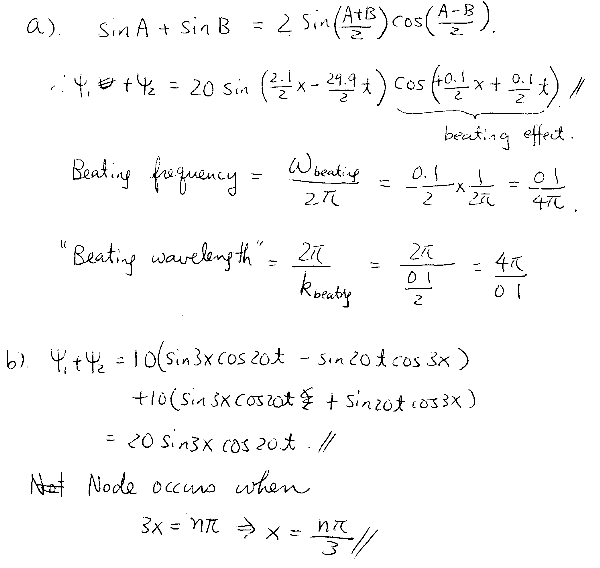 a). sin A + sin B = 2 sin((A+B)/2) cos((A-B)/2).
∴ Ψ₁ + Ψ₂ = 20 sin (2.1/2 x - 29.9/2 t) cos (+0.1/2 x + 0.1/2 t) //
beating effect.
Beating frequency = ω beating / 2π = 0.1/2 × 1/2π = 0.1/4π .
"Beating wavelength" = 2π / k beating = 2π / (0.1/2) = 4π / 0.1
b). Ψ₁ + Ψ₂ = 10(sin3x cos20t - sin20t cos3x)
+10(sin3x cos20t + sin20t cos3x)
= 20 sin3x cos20t . //
Node occurs when
3x = nπ ⇒ x = nπ/3 //